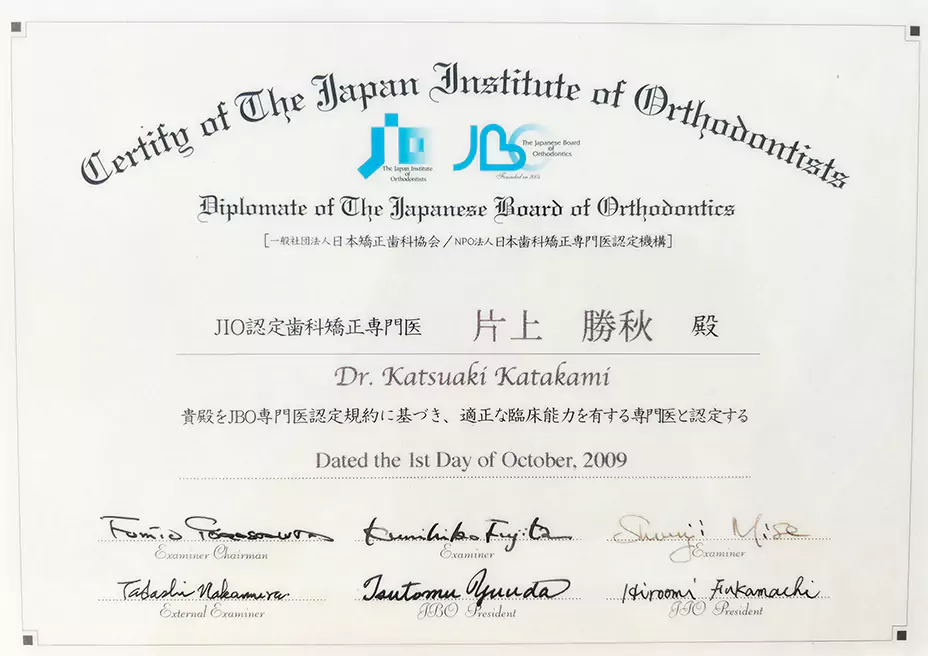 Certify of The Japan Institute of Orthodontists
JIO
The Japan Institute
of
Orthodontists
JBO
The Japanese Board
of
Orthodontics
Founded in
Diplomate of The Japanese Board of Orthodontics
[一般社団法人日本矯正歯科協会/NPO法人日本歯科矯正専門医認定機構]
JIO認定歯科矯正専門医 片上 勝秋 殿
Dr. Katsuaki Katakami
貴殿をJBO専門医認定規約に基づき、適正な臨床能力を有する専門医と認定する
Dated the 1st Day of October, 2009
Fumio Kunihiko Fujita Shunji Mise
Examiner Chairman Examiner Examiner
Tadashi Nakamura Tsutomu Yuuda Hiroomi Fukamachi
External Examiner JBO President JIO President